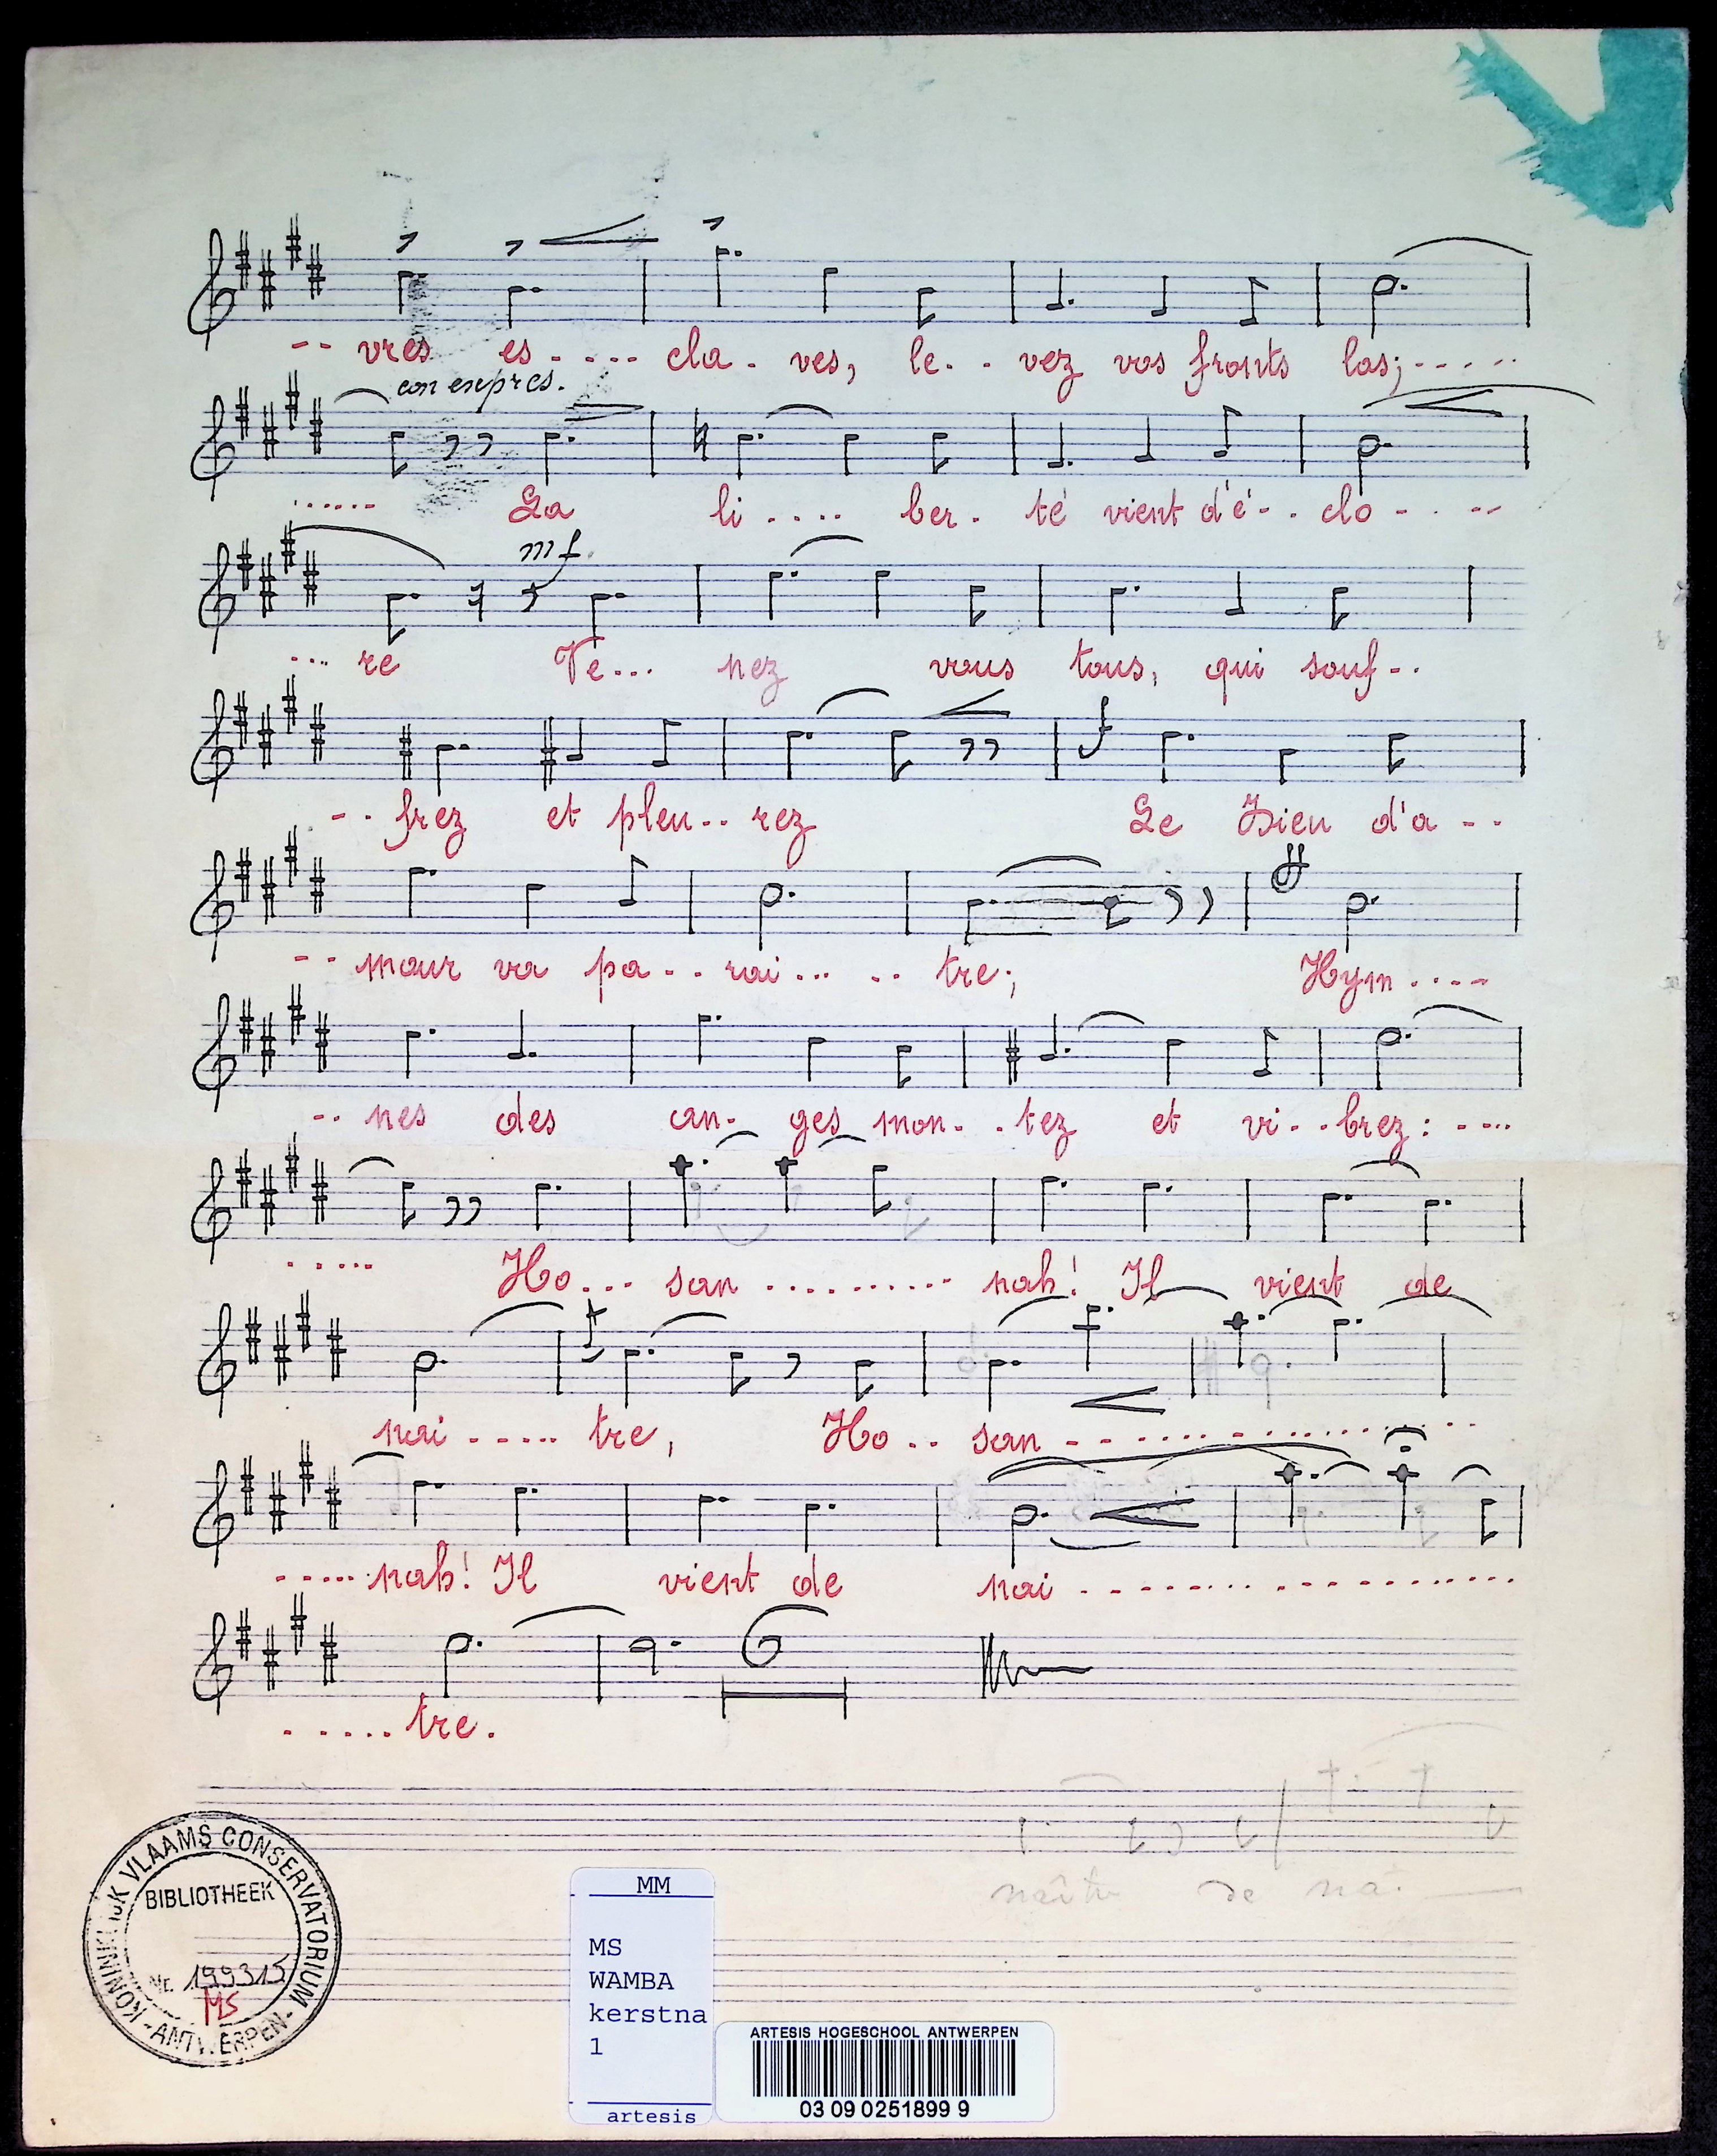 -- vres es - . - - - cla - ves, le. - vez vos fronts las; - - - - -
con expres.
...... La li .... ber. té vient d'é-. clo - . - --
mf
... re Ve... nez vous tous, qui souf-.
-. frez et pleu.. rez Le Dieu d'a --
f
-- mour va pa-. rai... .. tre; Hym ....
ff
.. nes des an- ges mon-. tez et vi-. brez: - ....
..... Ho... san .......... nah! Il vient de
nai ..... tre, Ho .. san - - - ..... - ........ - -
f
..... nah! Il vient de nai - - - - ... - - - ........
..... tre.
naître de naî
KONINKLIJK VLAAMS CONSERVATORIUM - ANTWERPEN -
BIBLIOTHEEK
Nr. 199315
MS
MM
MS
WAMBA
kerstna
1
artesis
ARTESIS HOGESCHOOL ANTWERPEN
03 09 0251899 9